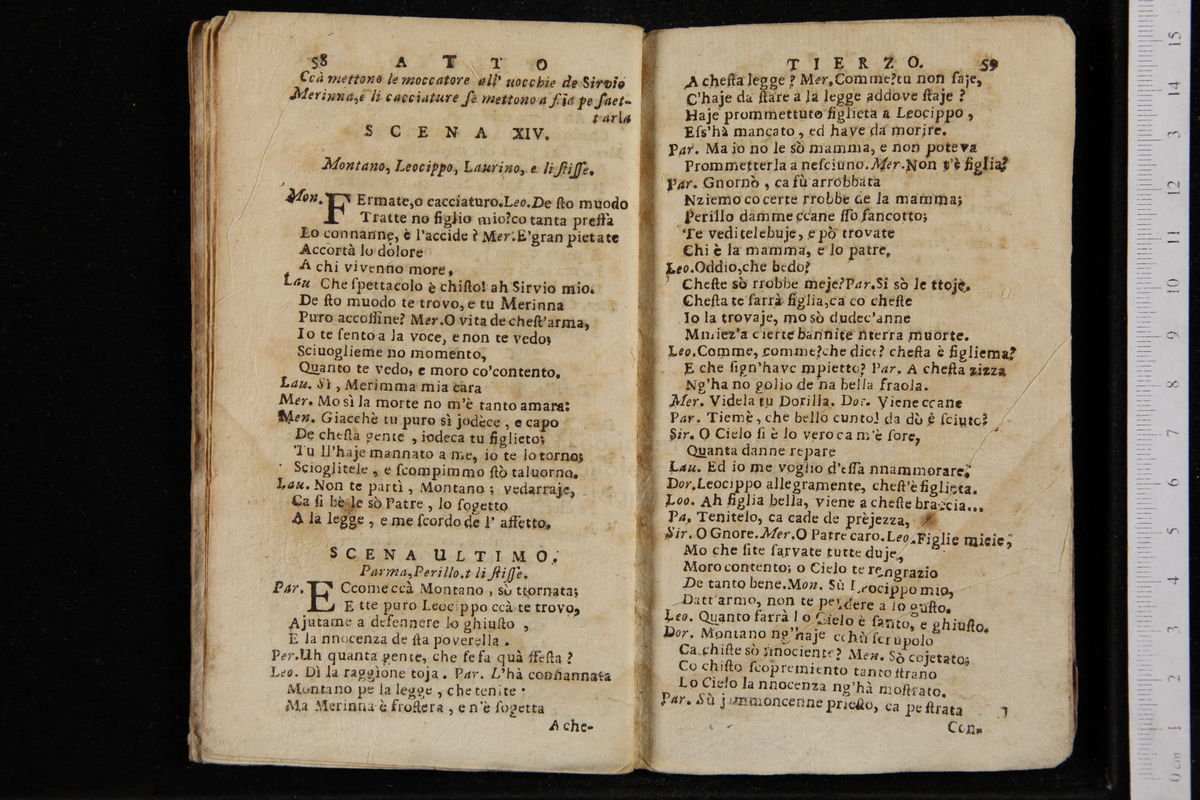 58 ATTO
Ccà mettono le moccatore all' uocchie de Sirvio
Merinna, e li cacciature se mettono a fila pe saet-
tarla
SCENA XIV.
Montano, Leocippo, Laurino, e li stisse.
Mon. FErmate, o cacciaturo. Leo. De sto muodo
Tratte no figlio mio? co tanta pressa
Lo connanne, è l'accide? Mer. E' gran pietate
Accortà lo dolore
A chi vivenno more,
Lau Che spettacolo è chisto! ah Sirvio mio.
De sto muodo te trovo, e tu Merinna
Puro accossine? Mer. O vita de chest'arma,
Io te sento a la voce, e non te vedo;
Sciuoglieme no momento,
Quanto te vedo, e moro co'contento.
Lau. Sì, Merimma mia cara
Mer. Mo sì la morte no m'è tanto amara:
Men. Giacchè tu puro sì jodece, e capo
De chesta gente, iodeca tu figlieto;
Tu ll'haje mannato a me, io te lo torno;
Scioglitele, e scompimmo stò taluorno.
Lau. Non te partì, Montano; vedarraje,
Ca si bè le sò Patre, lo sogetto
A la legge, e me scordo de l' affetto.
SCENA ULTIMO.
Parma, Perillo. e li stisse.
Par. ECcome ccà Montano, sò ttornata;
E tte puro Leocippo ccà te trovo,
Ajutame a defennere lo ghiusto,
E la nnocenza de sta poverella.
Per. Uh quanta gente, che se fa quà ffesta?
Leo. Dì la raggione toja. Par. L'hà connannata
Montano pe la legge, che tenite
Ma Merinna è frostera, e n'è sogetta
A che-
TIERZO. 59
A chesta legge? Mer. Comme? tu non saje,
C'haje da stare a la legge addove staje?
Haje prommettuto figlieta a Leocippo,
Ess'hà mancato, ed have da morire.
Par. Ma io no le sò mamma, e non poteva
Prommetterla a nesciuno. Mer. Non t'è figlia?
Par. Gnornò, ca fù arrobbata
Nziemo co certe rrobbe de la mamma;
Perillo damme ccane sso fancotto;
Te vedite lebuje, e pò trovate
Chi è la mamma, e lo patre,
Leo. Oddio, che bedo?
Cheste sò rrobbe meje? Par. Si sò le ttoje.
Chesta te sarrà figlia, ca co cheste
Io la trovaje, mo sò dudec'anne
Mmiez'a cierte bannite nterra muorte.
Leo. Comme, comme? che dice? chesta è figliema?
E che sign'have mpietto? Par. A chesta zizza
Ng'ha no golio de na bella fraola.
Mer. Videla tu Dorilla. Dor. Viene ccane
Par. Tiemè, che bello cunto! da dò è sciuto?
Sir. O Cielo si è lo vero ca m'è sore,
Quanta danne repare
Lau. Ed io me voglio d'essa nnammorare.
Dor. Leocippo allegramente, chest'è figlieta.
Loo. Ah figlia bella, viene a cheste braccia...
Pa. Tenitelo, ca cade de prèjezza,
Sir. O Gnore. Mer. O Patre caro. Leo. Figlie mieie,
Mo che site sarvate tutte duje,
Moro contento; o Cielo te rengrazio
De tanto bene. Mon. Sù Leocippo mio,
Datt'armo, non te perdere a lo gusto.
Leo. Quanto farrà lo Cielo è santo, e ghiusto.
Dor. Montano ng'haje cchù scrupolo
Ca chiste sò nnociente? Men. Sò cojetato;
Co chisto scopremiento tanto strano
Lo Cielo la nnocenza ng'hà mostrato.
Par. Sù jammoncenne priesto, ca pe strata
Con-